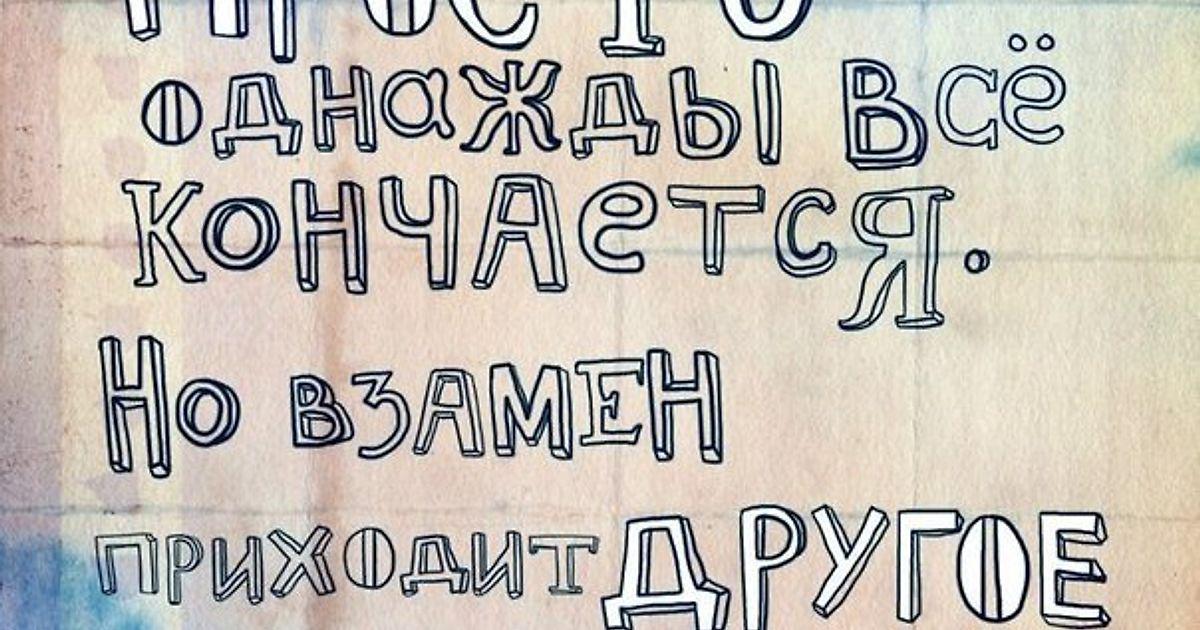 Просто
однажды всё
кончается.
Но взамен
приходит другое